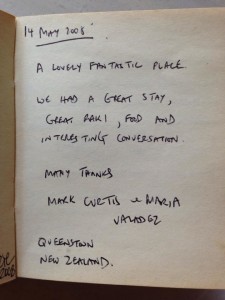 14 MAY 2008
A LOVELY FANTASTIC PLACE.
WE HAD A GREAT STAY,
GREAT RAKI, FOOD AND
INTERESTING CONVERSATION.
MANY THANKS
MARK CURTIS & MARIA
QUEENSTOWN
NEW ZEALAND.